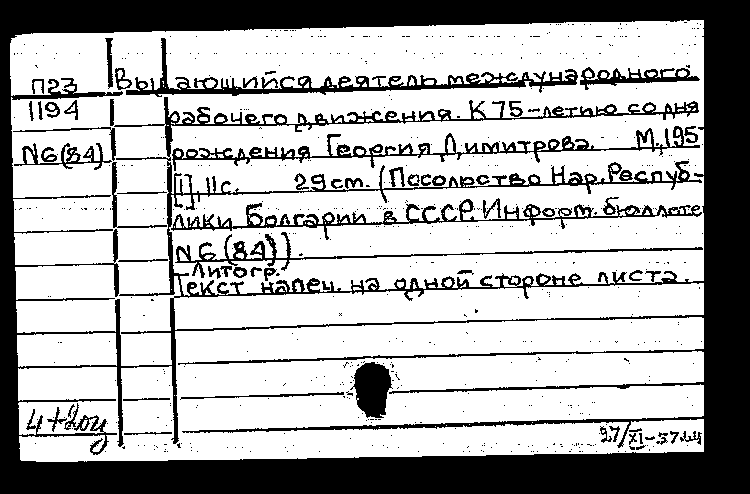 П23 Выдающийся деятель международного
1194 рабочего движения. К 75-летию со дня
N6(84) рождения Георгия Димитрова. М,195
[1], 11с. 29cm. (Посольство Нар. Респуб-
лики Болгарии в СССР. Информ. бюллете
N6(84)).
Литогр.
Текст напеч. на одной стороне листа.
4+2оц
27/XI-57